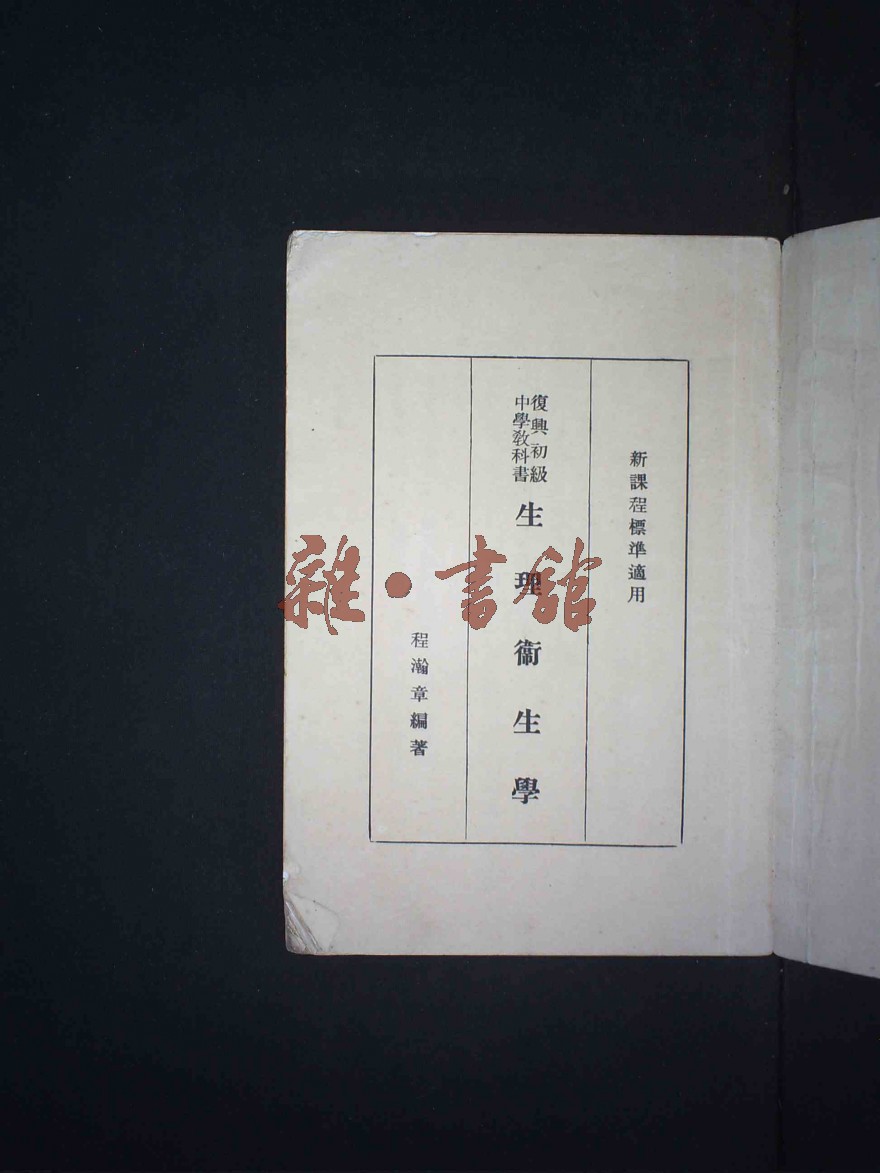 新課程標準適用
復興初級
中學教科書
生理衞生學
程瀚章編著
雜·書館